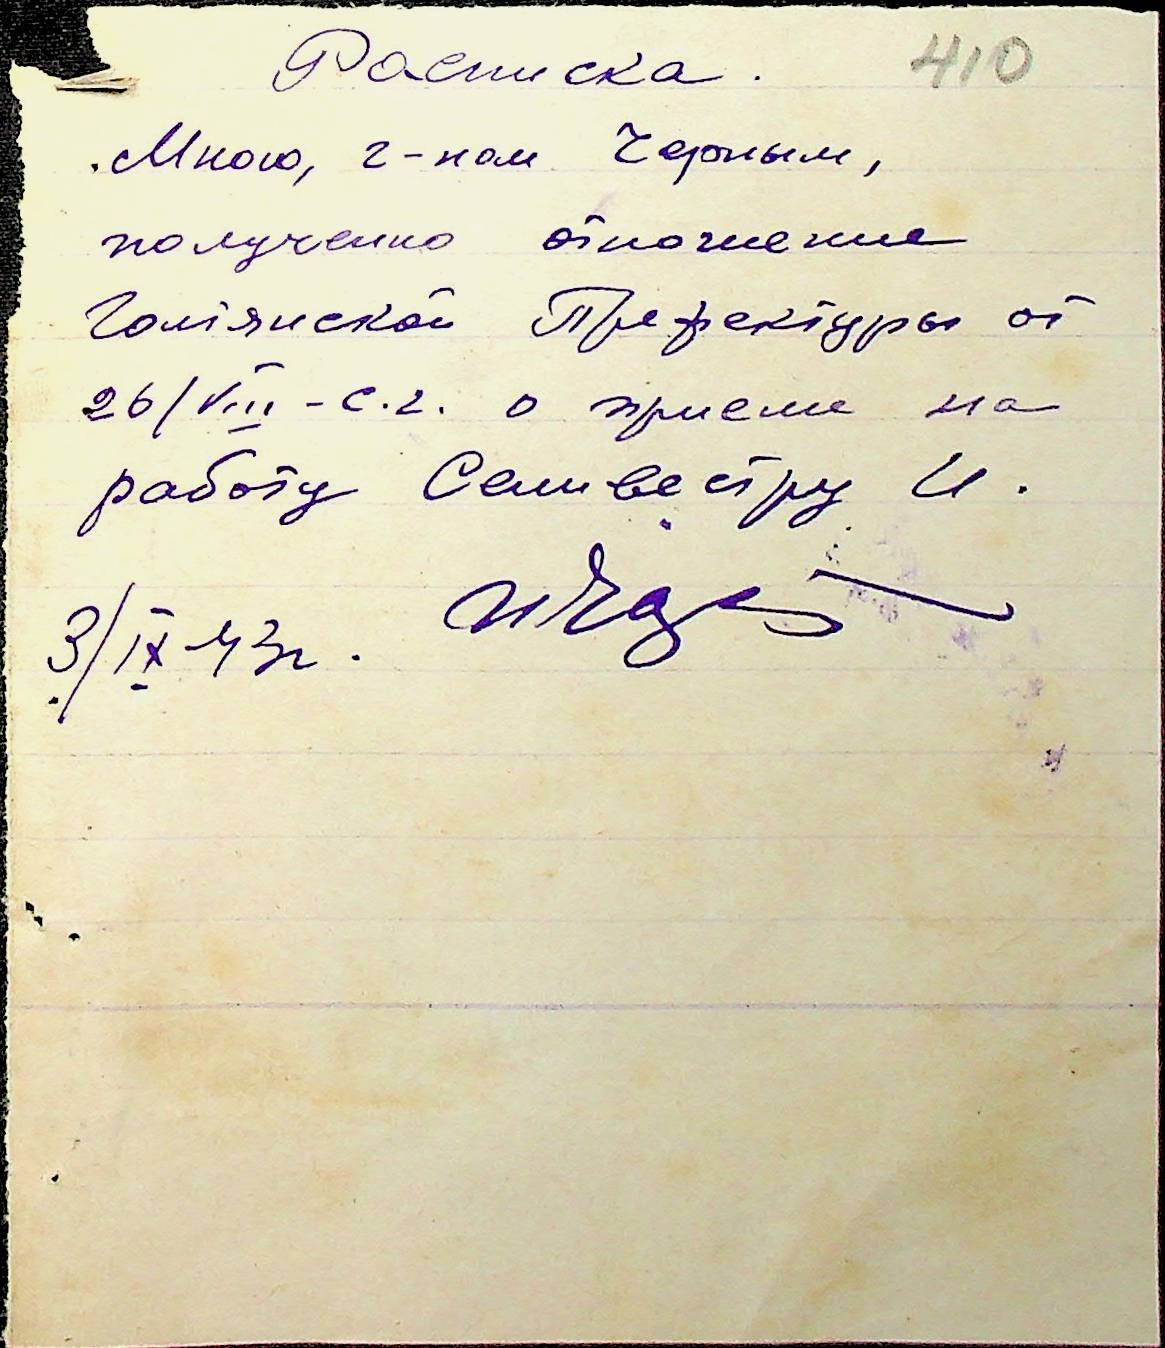 Расписка. 410
Мною, г-ном Черным,
полученно отношение
Голтянской Префектуры от
26/VIII - с.г. о приеме на
работу Селивестру И.
3/IX 43г.